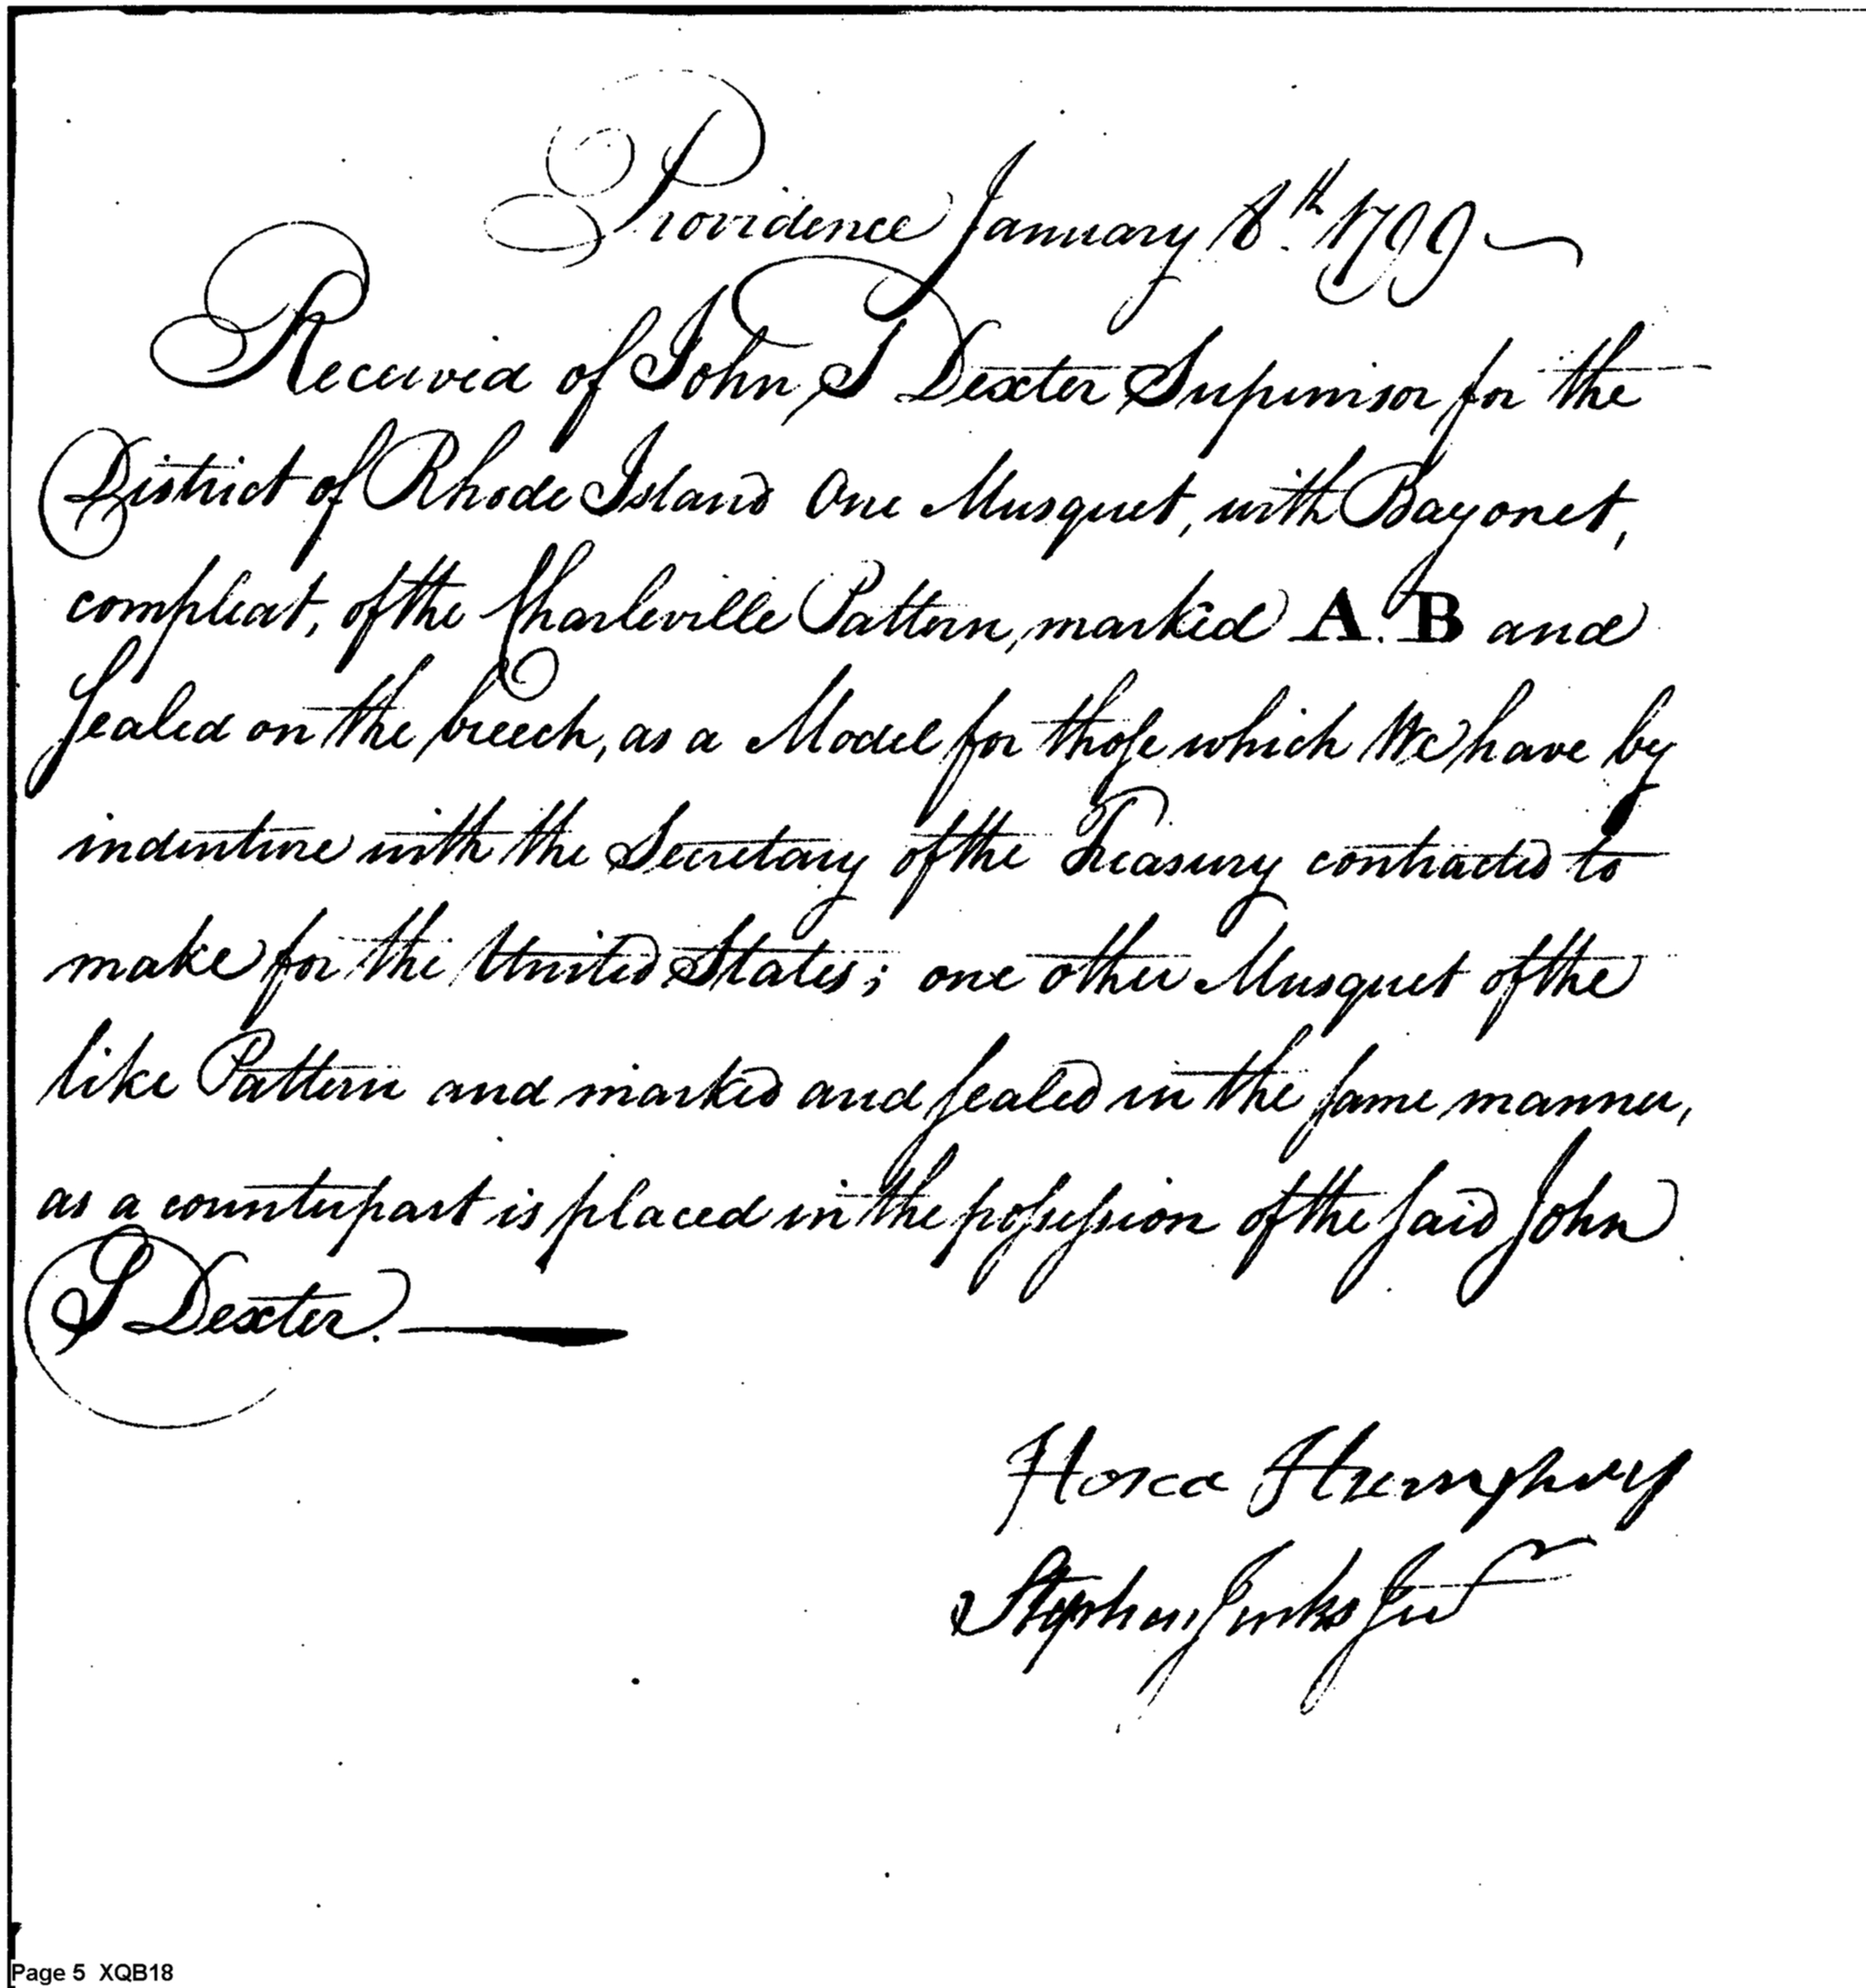 Providence January 8th. 1799
Received of John S Dexter Supervisor for the
District of Rhode Island One Musquet, with Bayonet,
compleat, of the Charleville Pattern, marked A. B and
Sealed on the breech, as a Model for those which We have by
indenture with the Secretary of the Treasury contracted to
make for the United States; one other Musquet of the
like Pattern and marked and sealed in the same manner,
as a counterpart is placed in the possession of the said John
S Dexter.
Hosea Humphry
Stephen Jenks Jur
Page 5 XQB18